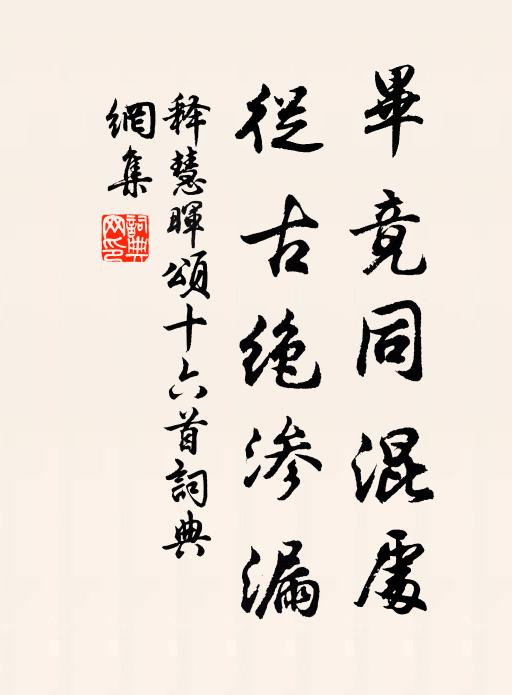 畢竟同混處
從古絕滲漏
释慧暉頌十六首詞典
網集
詞典網印